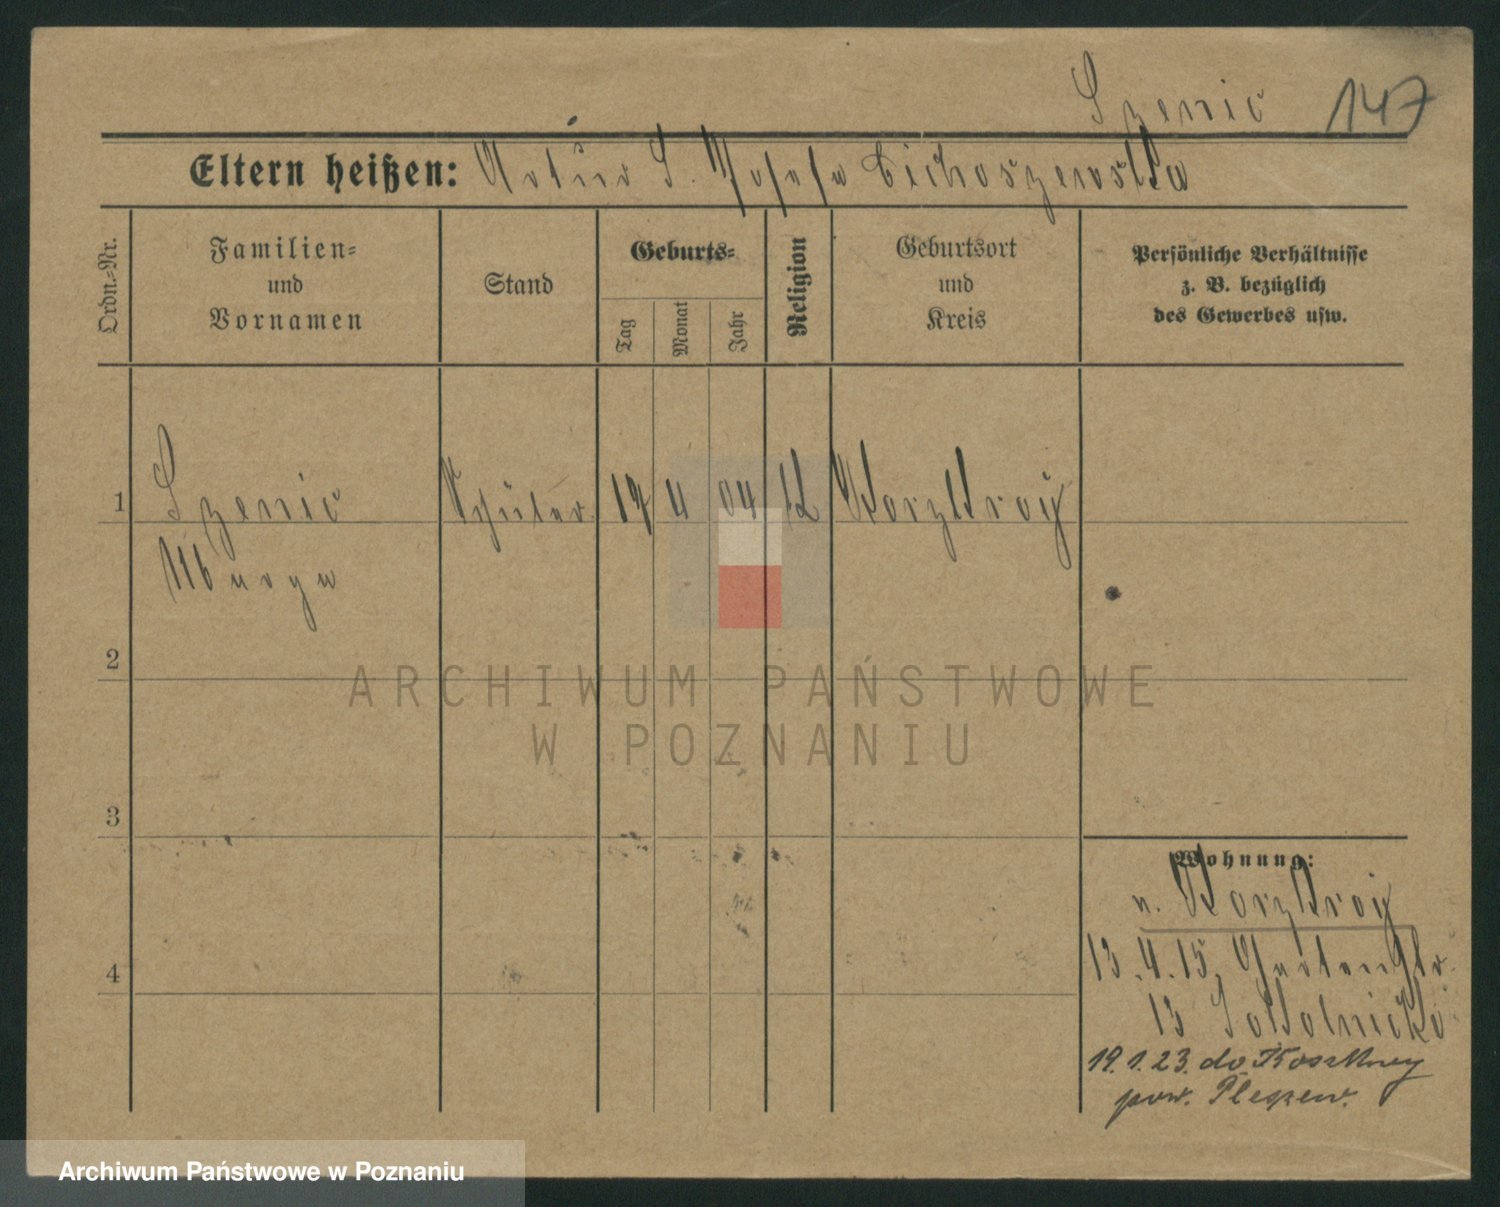 Szenic 147
Eltern heißen: Artur S. Josefa Cichoszewska
Ordn.-Nr.
Familien-
und
Vornamen
Stand
Geburts-
Tag
Monat
Jahr
Religion
Geburtsort
und
Kreis
Persönliche Verhältnisse
z. B. bezüglich
des Gewerbes usw.
1 Szenic Schüler 17 4 04 k Korzkwy
2
3
4
Wohnung:
n. Korzkwy
13.4.15. Gartenstr.
13
19.1.23. do
pow. Pleszew.
ARCHIWUM PAŃSTWOWE
W POZNANIU
Archiwum Państwowe w Poznaniu